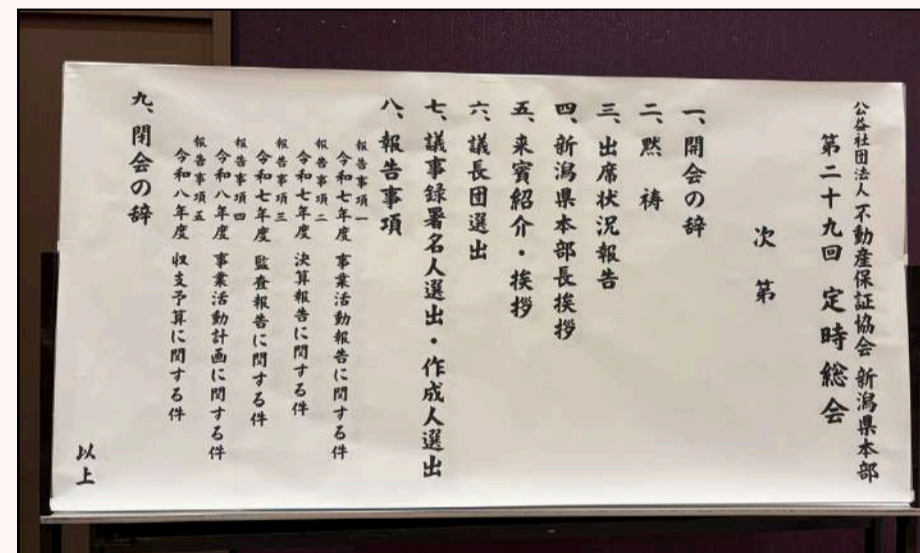 公益社団法人 不動産保証協会 新潟県本部
第二十九回 定時総会
次第
一、開会の辞
二、黙祷
三、出席状況報告
四、新潟県本部長挨拶
五、来賓紹介・挨拶
六、議長団選出
七、議事録署名人選出・作成人選出
八、報告事項
報告事項一
令和七年度 事業活動報告に関する件
報告事項二
令和七年度 決算報告に関する件
報告事項三
令和七年度 監査報告に関する件
報告事項四
令和八年度 事業活動計画に関する件
報告事項五
令和八年度 収支予算に関する件
九、閉会の辞
以上